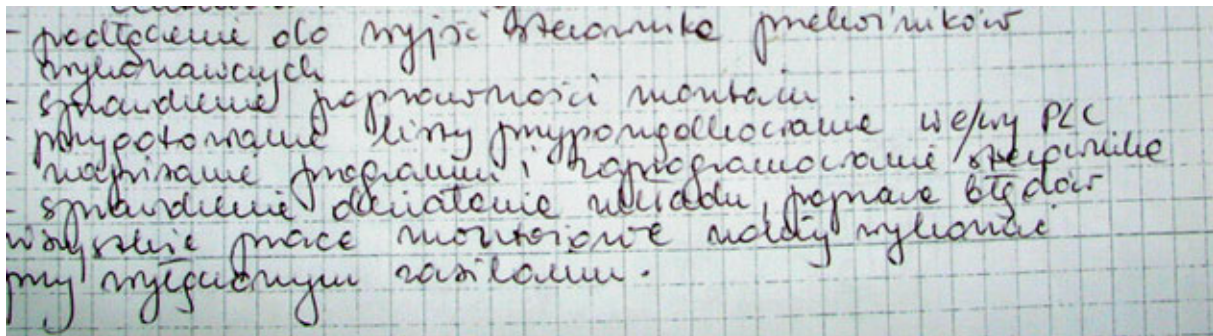 - podłączenie do wyjść sterownika przekaźników
wykonawczych
- sprawdzenie poprawności montażu.
- przygotowanie listy przyporządkowania we/wy PLC
- napisanie programu i zaprogramowanie sterownika
- sprawdzenie działania układu, poprawa błędów
wszystkie prace montażowe należy wykonać
przy wyłączonym zasilaniu.